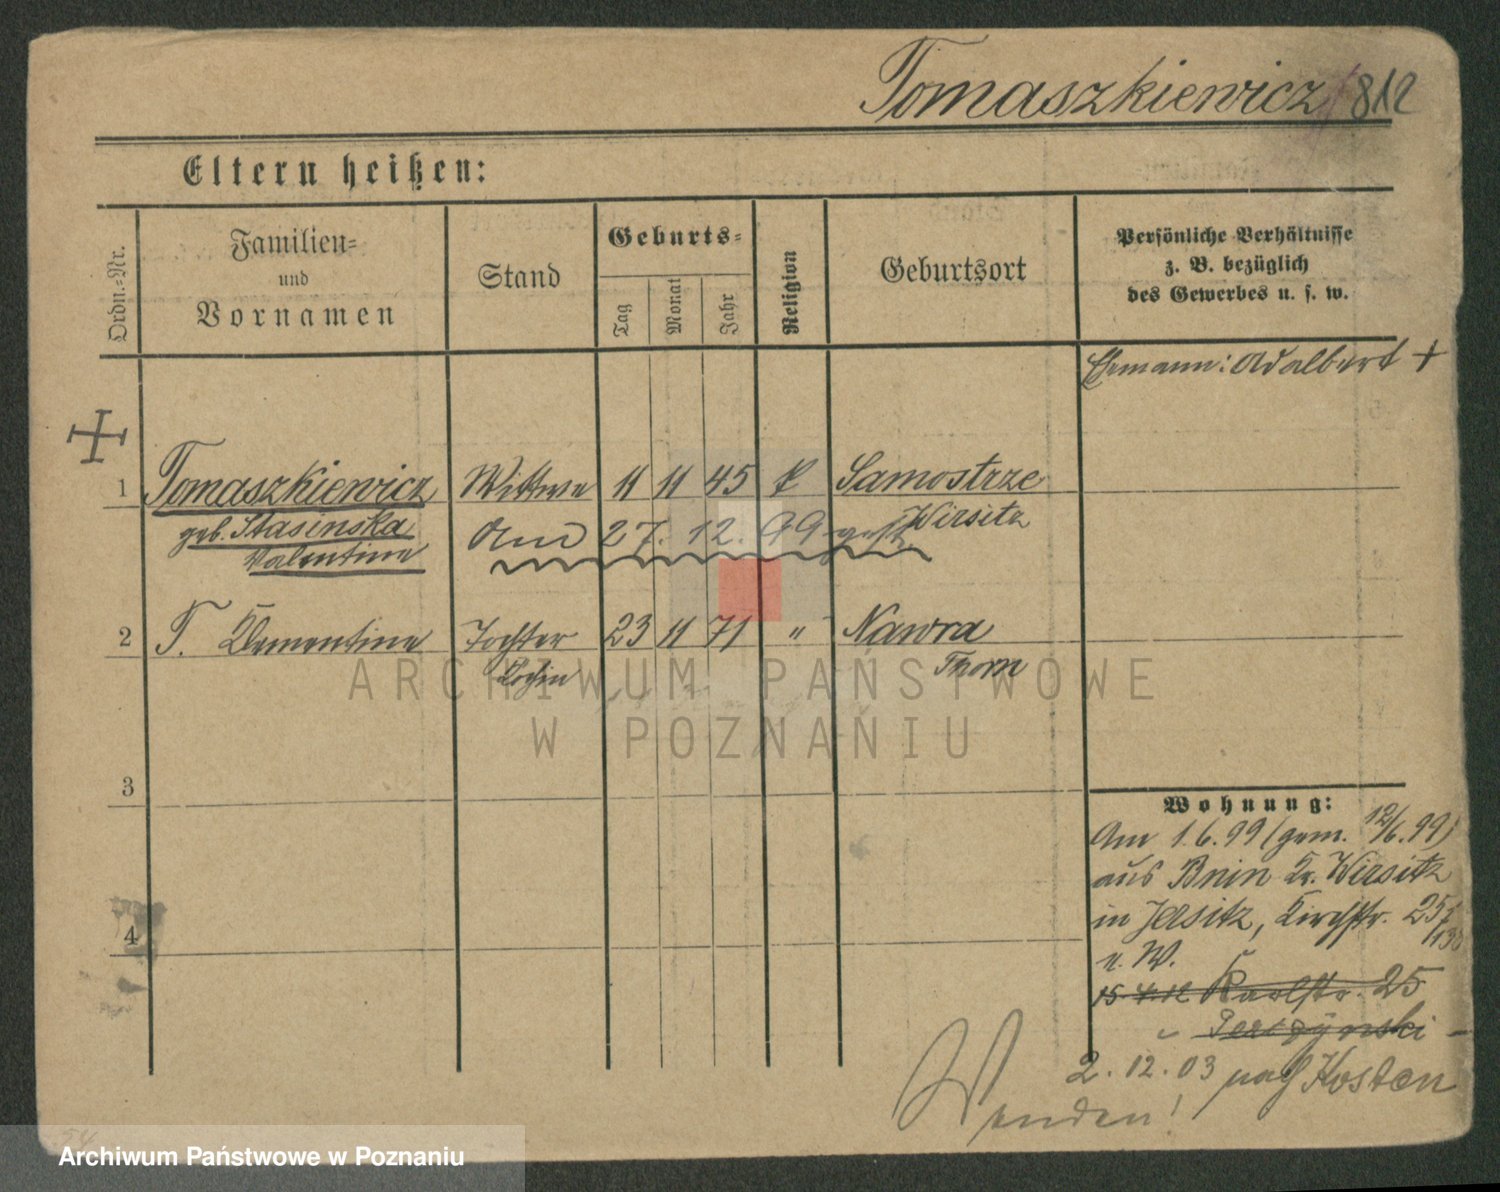 Tomaszkiewicz 812
Eltern heißen:
Ordn.-Nr.
Familien-
und
Vornamen
Stand
Geburts-
Tag
Monat
Jahr
Religion
Geburtsort
Persönliche Verhältnisse
z. B. bezüglich
des Gewerbes u. s. w.
Ehemann: Adalbert +
1 Tomaszkiewicz Wittwe 11 11 45 k Samostrze
geb. Stasinska Wirsitz
Valentine Am 27. 12. 99 gest.
2 T. Clementine Tochter 23 11 71 " Nawra
Köchin Thorn
3
4
Wohnung:
Am 1.6.99 (gem. 12/6.99)
aus Bnin Kr. Wirsitz
in Jersitz, Kirchstr. 25
u. W.
15 4 12 Karlstr. 25
2.12.03 nach Kosten
Wenden!
ARCHIWUM PAŃSTWOWE
W POZNANIU
Archiwum Państwowe w Poznaniu